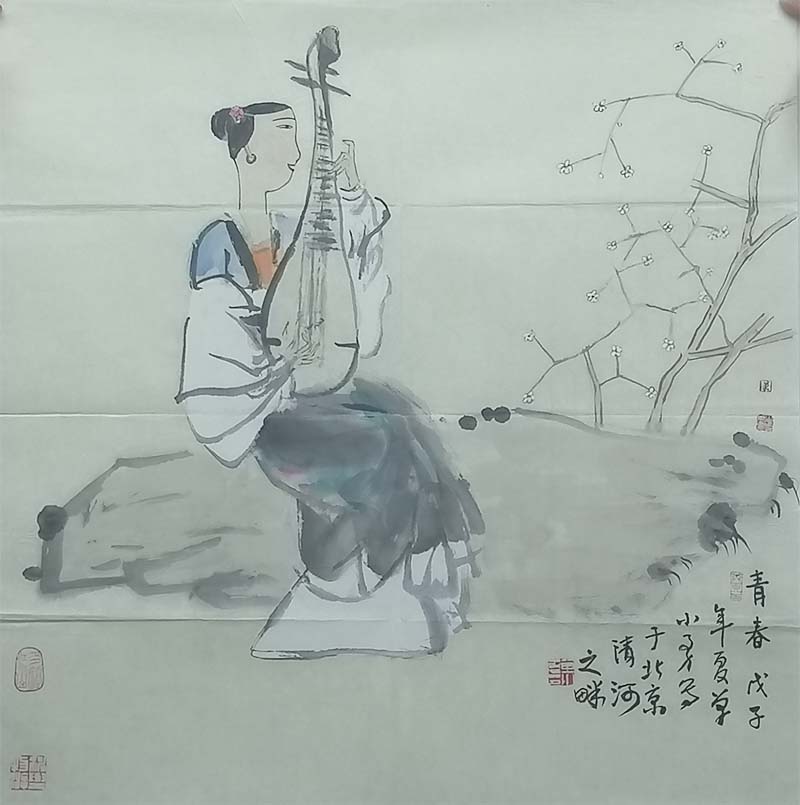 青春 戊子
年夏草
小勇写
于北京
清河
之畔